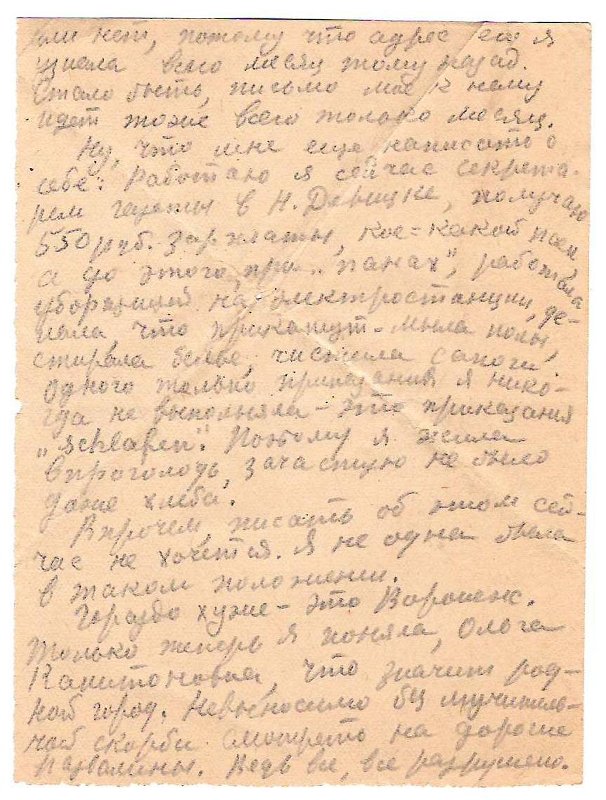 или нет, потому что адрес его я
узнала всего месяц тому назад.
Стало быть, письмо мое к нему
идет тоже всего только месяц.
Ну, что мне еще написать о
себе? Работаю я сейчас секрета-
рем газеты в Н. Девицке, получаю
550 руб. зарплаты, кое-какой паек
а до этого, при "панах", работала
уборщицей на электростанции, де-
лала, что прикажут - мыла полы,
стирала белье, чистила сапоги.
Одного только приказания я нико-
гда не выполняла - это приказания
"schlafen". Поэтому я жила
впроголодь, зачастую не было
даже хлеба.
Впрочем, писать об этом сей-
час не хочется. Я не одна была
в таком положении.
Гораздо хуже - это Воронеж.
Только теперь я поняла, Ольга
Капитоновна, что значит род-
ной город. Невыносимо без мучитель-
ной скорби смотреть на дорогие
развалины. Ведь все, все разрушено.